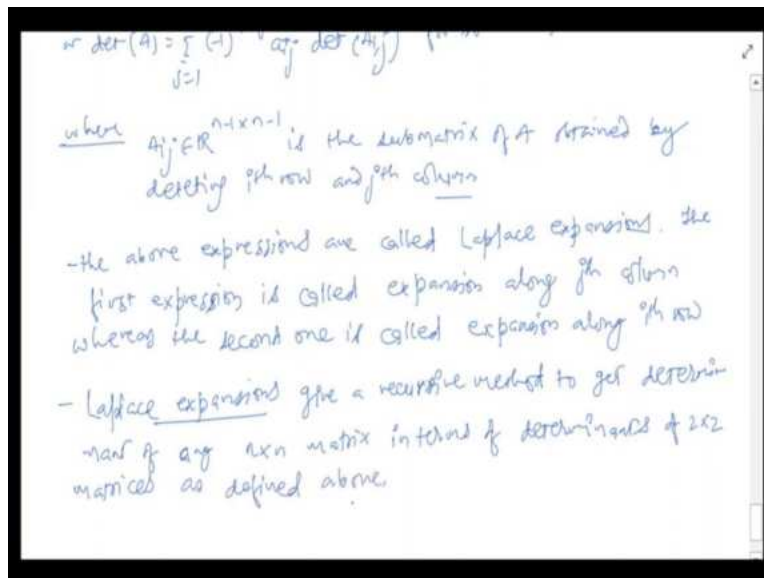 or det(A) = Σ (-1) aij det(Aij)
j=1
where Aij ∈ R^n-1×n-1 is the submatrix of A obtained by
deleting ith row and jth column
- the above expressions are called Laplace expansions. The
first expression is called expansion along jth column
whereas the second one is called expansion along ith row
- Laplace expansions give a recursive method to get determin
nant of any nxn matrix in terms of determinants of 2x2
matrices as defined above.